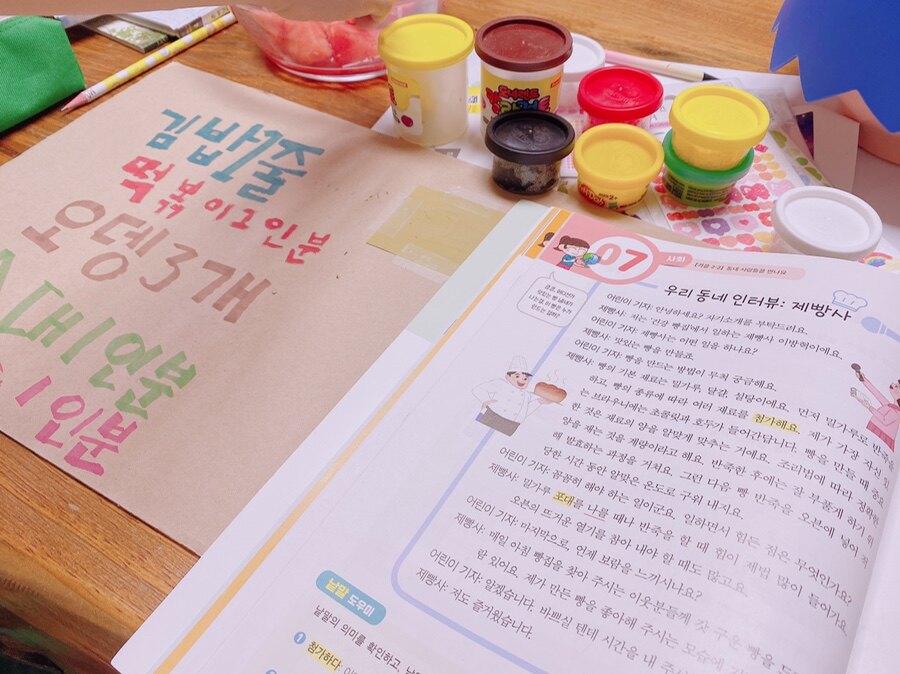 김밥1줄
떡볶이1인분
오뎅3개
대1인분
1인분
07
사회
동네 사람들을 만나요
우리 동네 인터뷰: 제빵사
어린이 기자: 안녕하세요? 자기소개를 부탁드려요.
제빵사: 저는 '건강 빵집'에서 일하는 제빵사 이방혁이에요.
어린이 기자: 제빵사는 어떤 일을 하나요?
제빵사: 맛있는 빵을 만들죠.
어린이 기자: 빵을 만드는 방법이 무척 궁금해요.
제빵사: 빵의 기본 재료는 밀가루, 달걀, 설탕이에요. 먼저 밀가루로 반죽을
하고, 빵의 종류에 따라 여러 재료를 첨가해요. 제가 가장 자신 있
는 브라우니에는 초콜릿과 호두가 들어간답니다. 빵을 만들 때 중요
한 것은 재료의 양을 알맞게 맞추는 거예요. 조리법에 따라 정확한
양을 재는 것을 계량이라고 해요. 반죽한 후에는 잘 부풀게 하기 위
해 발효하는 과정을 거쳐요. 그런 다음 빵 반죽을 오븐에 넣어 적
당한 시간 동안 알맞은 온도로 구워 내지요.
어린이 기자: 꼼꼼히 해야 하는 일이군요. 일하면서 힘든 점은 무엇인가요?
제빵사: 밀가루 포대를 나를 때나 반죽을 할 때 힘이 제법 많이 들어가요.
오븐의 뜨거운 열기를 참아 내야 할 때도 많고요.
어린이 기자: 마지막으로, 언제 보람을 느끼시나요?
제빵사: 매일 아침 빵집을 찾아 주시는 이웃분들께 갓 구운 빵을 드
람 있어요. 제가 만든 빵을 좋아해 주시는 모습에
어린이 기자: 알겠습니다. 바쁘실 텐데 시간을 내 주
제빵사: 저도 즐거웠습니다.
낱말 도우미
낱말의 의미를 확인하고,
1 첨가하다: